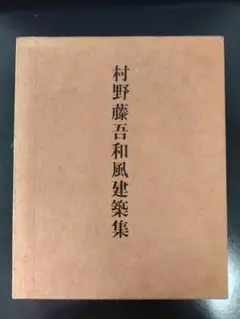 村野藤吾和風建築集